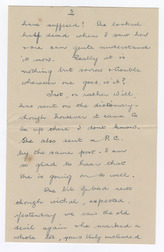 2
have suffered! She looked
half dead when I saw her
& one can quite understand
it now. Really it is
nothing but worries & trouble
wherever one goes, is it?
Just, or rather Will
has sent on the dictionary -
though however it came to
be up there I don't know.
She also sent me P.C.
by the same post. I am
so glad to hear that
she is going on so well.
We
though
yesterday we saw the old
devil again who marked a
whole lot,